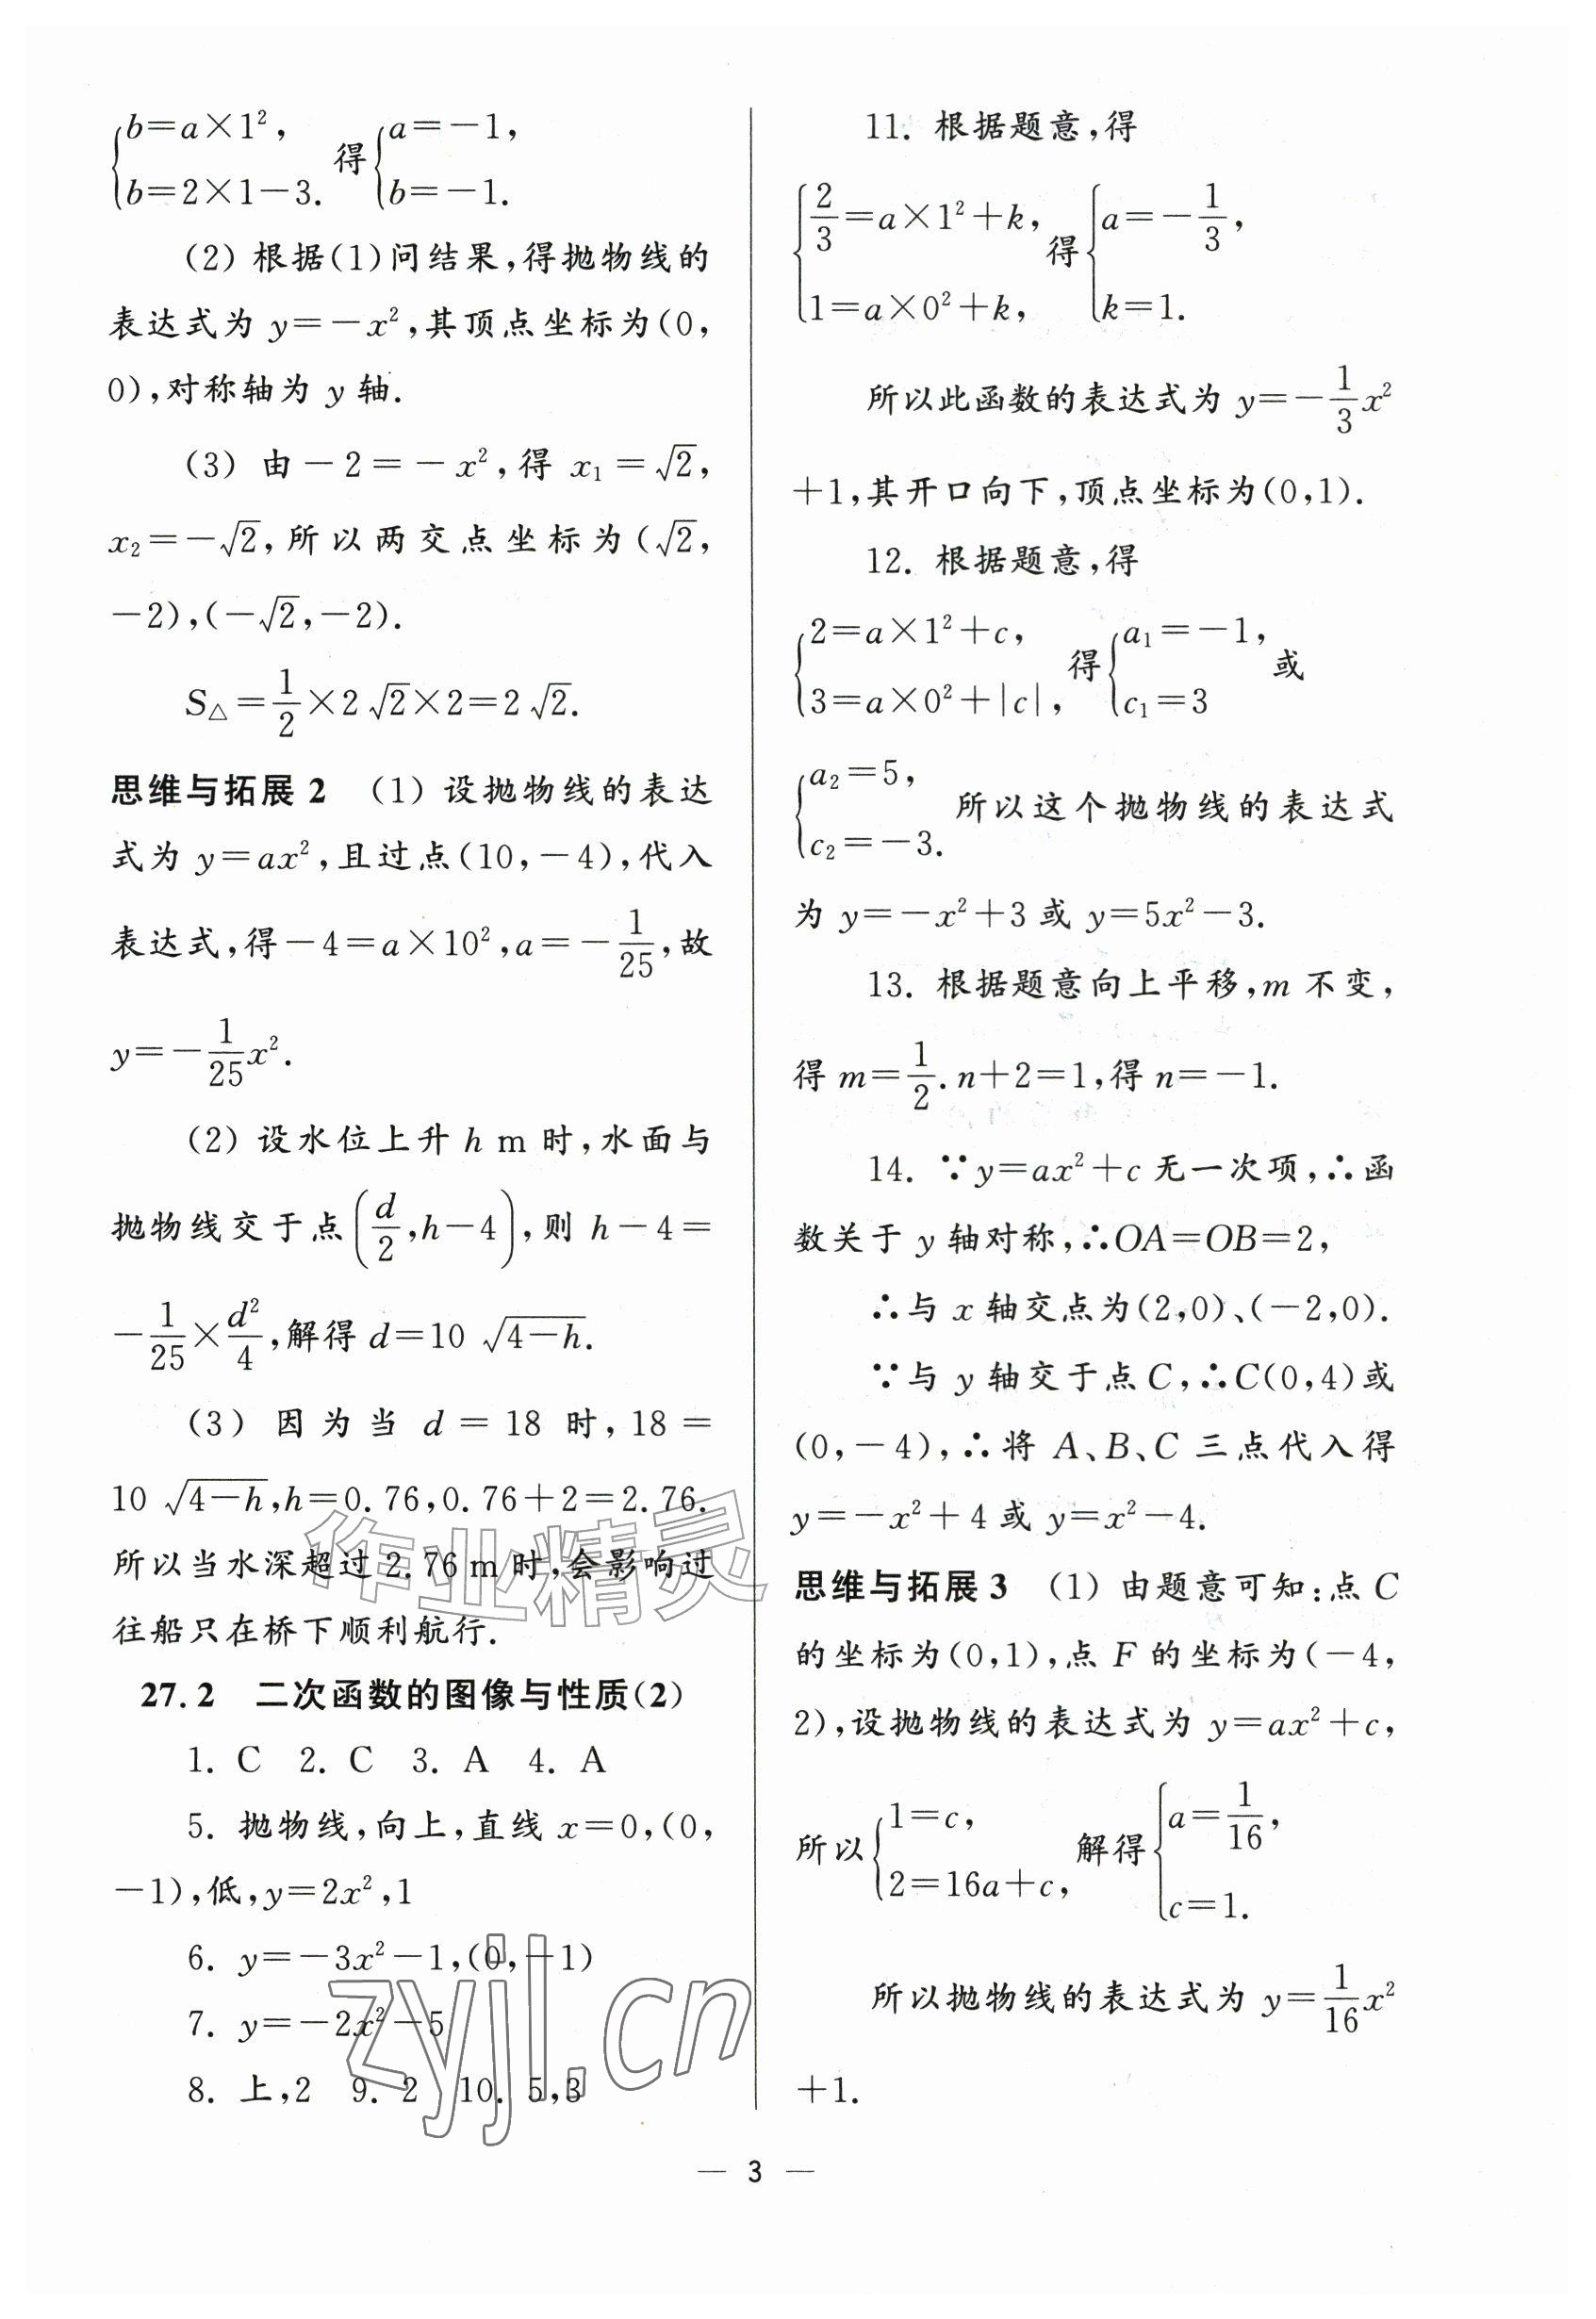 {b=a×1², b=2×1-3. 得{a=-1, b=-1.
(2) 根据(1)问结果,得抛物线的
表达式为 y=-x²,其顶点坐标为(0,
0),对称轴为 y 轴.
(3) 由-2=-x²,得 x₁=√2,
x₂=-√2,所以两交点坐标为(√2,
-2),(-√2,-2).
S△=1/2×2√2×2=2√2.
思维与拓展 2 (1) 设抛物线的表达
式为 y=ax²,且过点(10,-4),代入
表达式,得-4=a×10²,a=-1/25,故
y=-1/25x².
(2) 设水位上升 h m 时,水面与
抛物线交于点(d/2,h-4),则 h-4=
-1/25×d²/4,解得 d=10√(4-h).
(3) 因为当 d=18 时,18=
10√(4-h),h=0.76,0.76+2=2.76.
所以当水深超过 2.76 m 时,会影响过
往船只在桥下顺利航行.
27.2 二次函数的图像与性质(2)
1. C 2. C 3. A 4. A
5. 抛物线,向上,直线 x=0,(0,
-1),低,y=2x²,1
6. y=-3x²-1,(0,-1)
7. y=-2x²-5
8. 上,2 9. 2 10. 5,3
11. 根据题意,得
{2/3=a×1²+k, 1=a×0²+k, 得{a=-1/3, k=1.
所以此函数的表达式为 y=-1/3x²
+1,其开口向下,顶点坐标为(0,1).
12. 根据题意,得
{2=a×1²+c, 3=a×0²+|c|, 得{a₁=-1, c₁=3 或
{a₂=5, c₂=-3. 所以这个抛物线的表达式
为 y=-x²+3 或 y=5x²-3.
13. 根据题意向上平移,m 不变,
得 m=1/2.n+2=1,得 n=-1.
14. ∵y=ax²+c 无一次项,∴函
数关于 y 轴对称,∴OA=OB=2,
∴与 x 轴交点为(2,0)、(-2,0).
∵与 y 轴交于点 C,∴C(0,4)或
(0,-4),∴将 A、B、C 三点代入得
y=-x²+4 或 y=x²-4.
思维与拓展 3 (1) 由题意可知:点 C
的坐标为(0,1),点 F 的坐标为(-4,
2),设抛物线的表达式为 y=ax²+c,
所以{1=c, 2=16a+c, 解得{a=1/16, c=1.
所以抛物线的表达式为 y=1/16x²
+1.
— 3 —
作业精灵
zyjl.cn